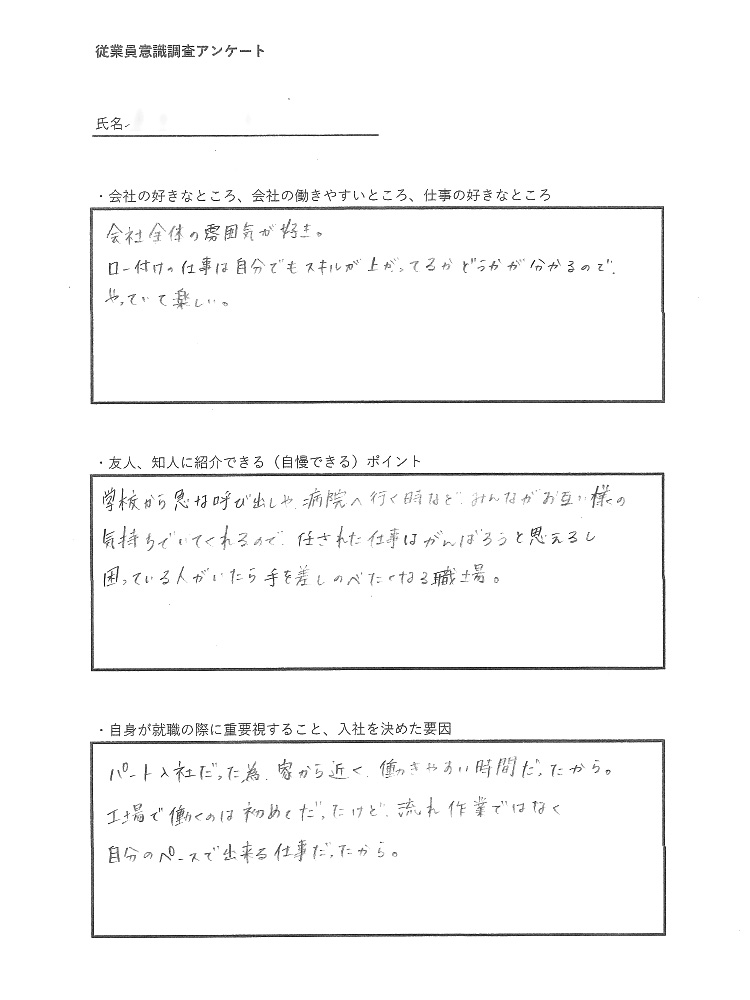 従業員意識調査アンケート
氏名
・会社の好きなところ、会社の働きやすいところ、仕事の好きなところ
会社全体の雰囲気が好き。
ロー付けの仕事は自分でもスキルが上がってるかどうかが分かるので、
やっていて楽しい。
・友人、知人に紹介できる（自慢できる）ポイント
学校から急な呼び出しや、病院へ行く時など、みんながお互い様の
気持ちでいてくれるので、任された仕事はがんばろうと思えるし
困っている人がいたら手を差しのべたくなる職場。
・自身が就職の際に重要視すること、入社を決めた要因
パート入社だった為、家から近く、働きやすい時間だったから。
工場で働くのは初めてだったけど、流れ作業ではなく
自分のペースで出来る仕事だったから。